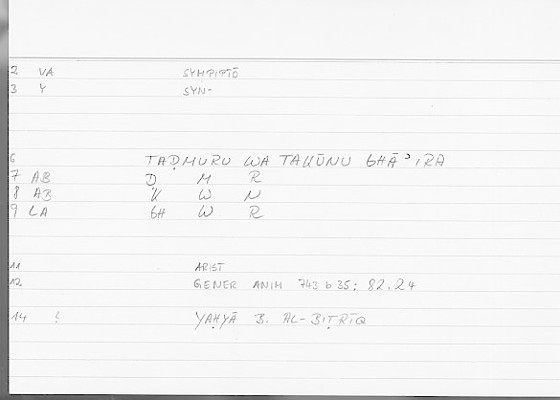 2 VA SYMPIPTŌ
3 Y SYN-
6 TAḌMURU WA TAKŪNU GHĀʾIRA
7 AB Ḍ M R
8 AB K W N
9 LA GH W R
11 ARIST
12 GENER ANIM 743 b 35; 82.24
14 ? YAḤYĀ B. AL-BIṬRĪQ